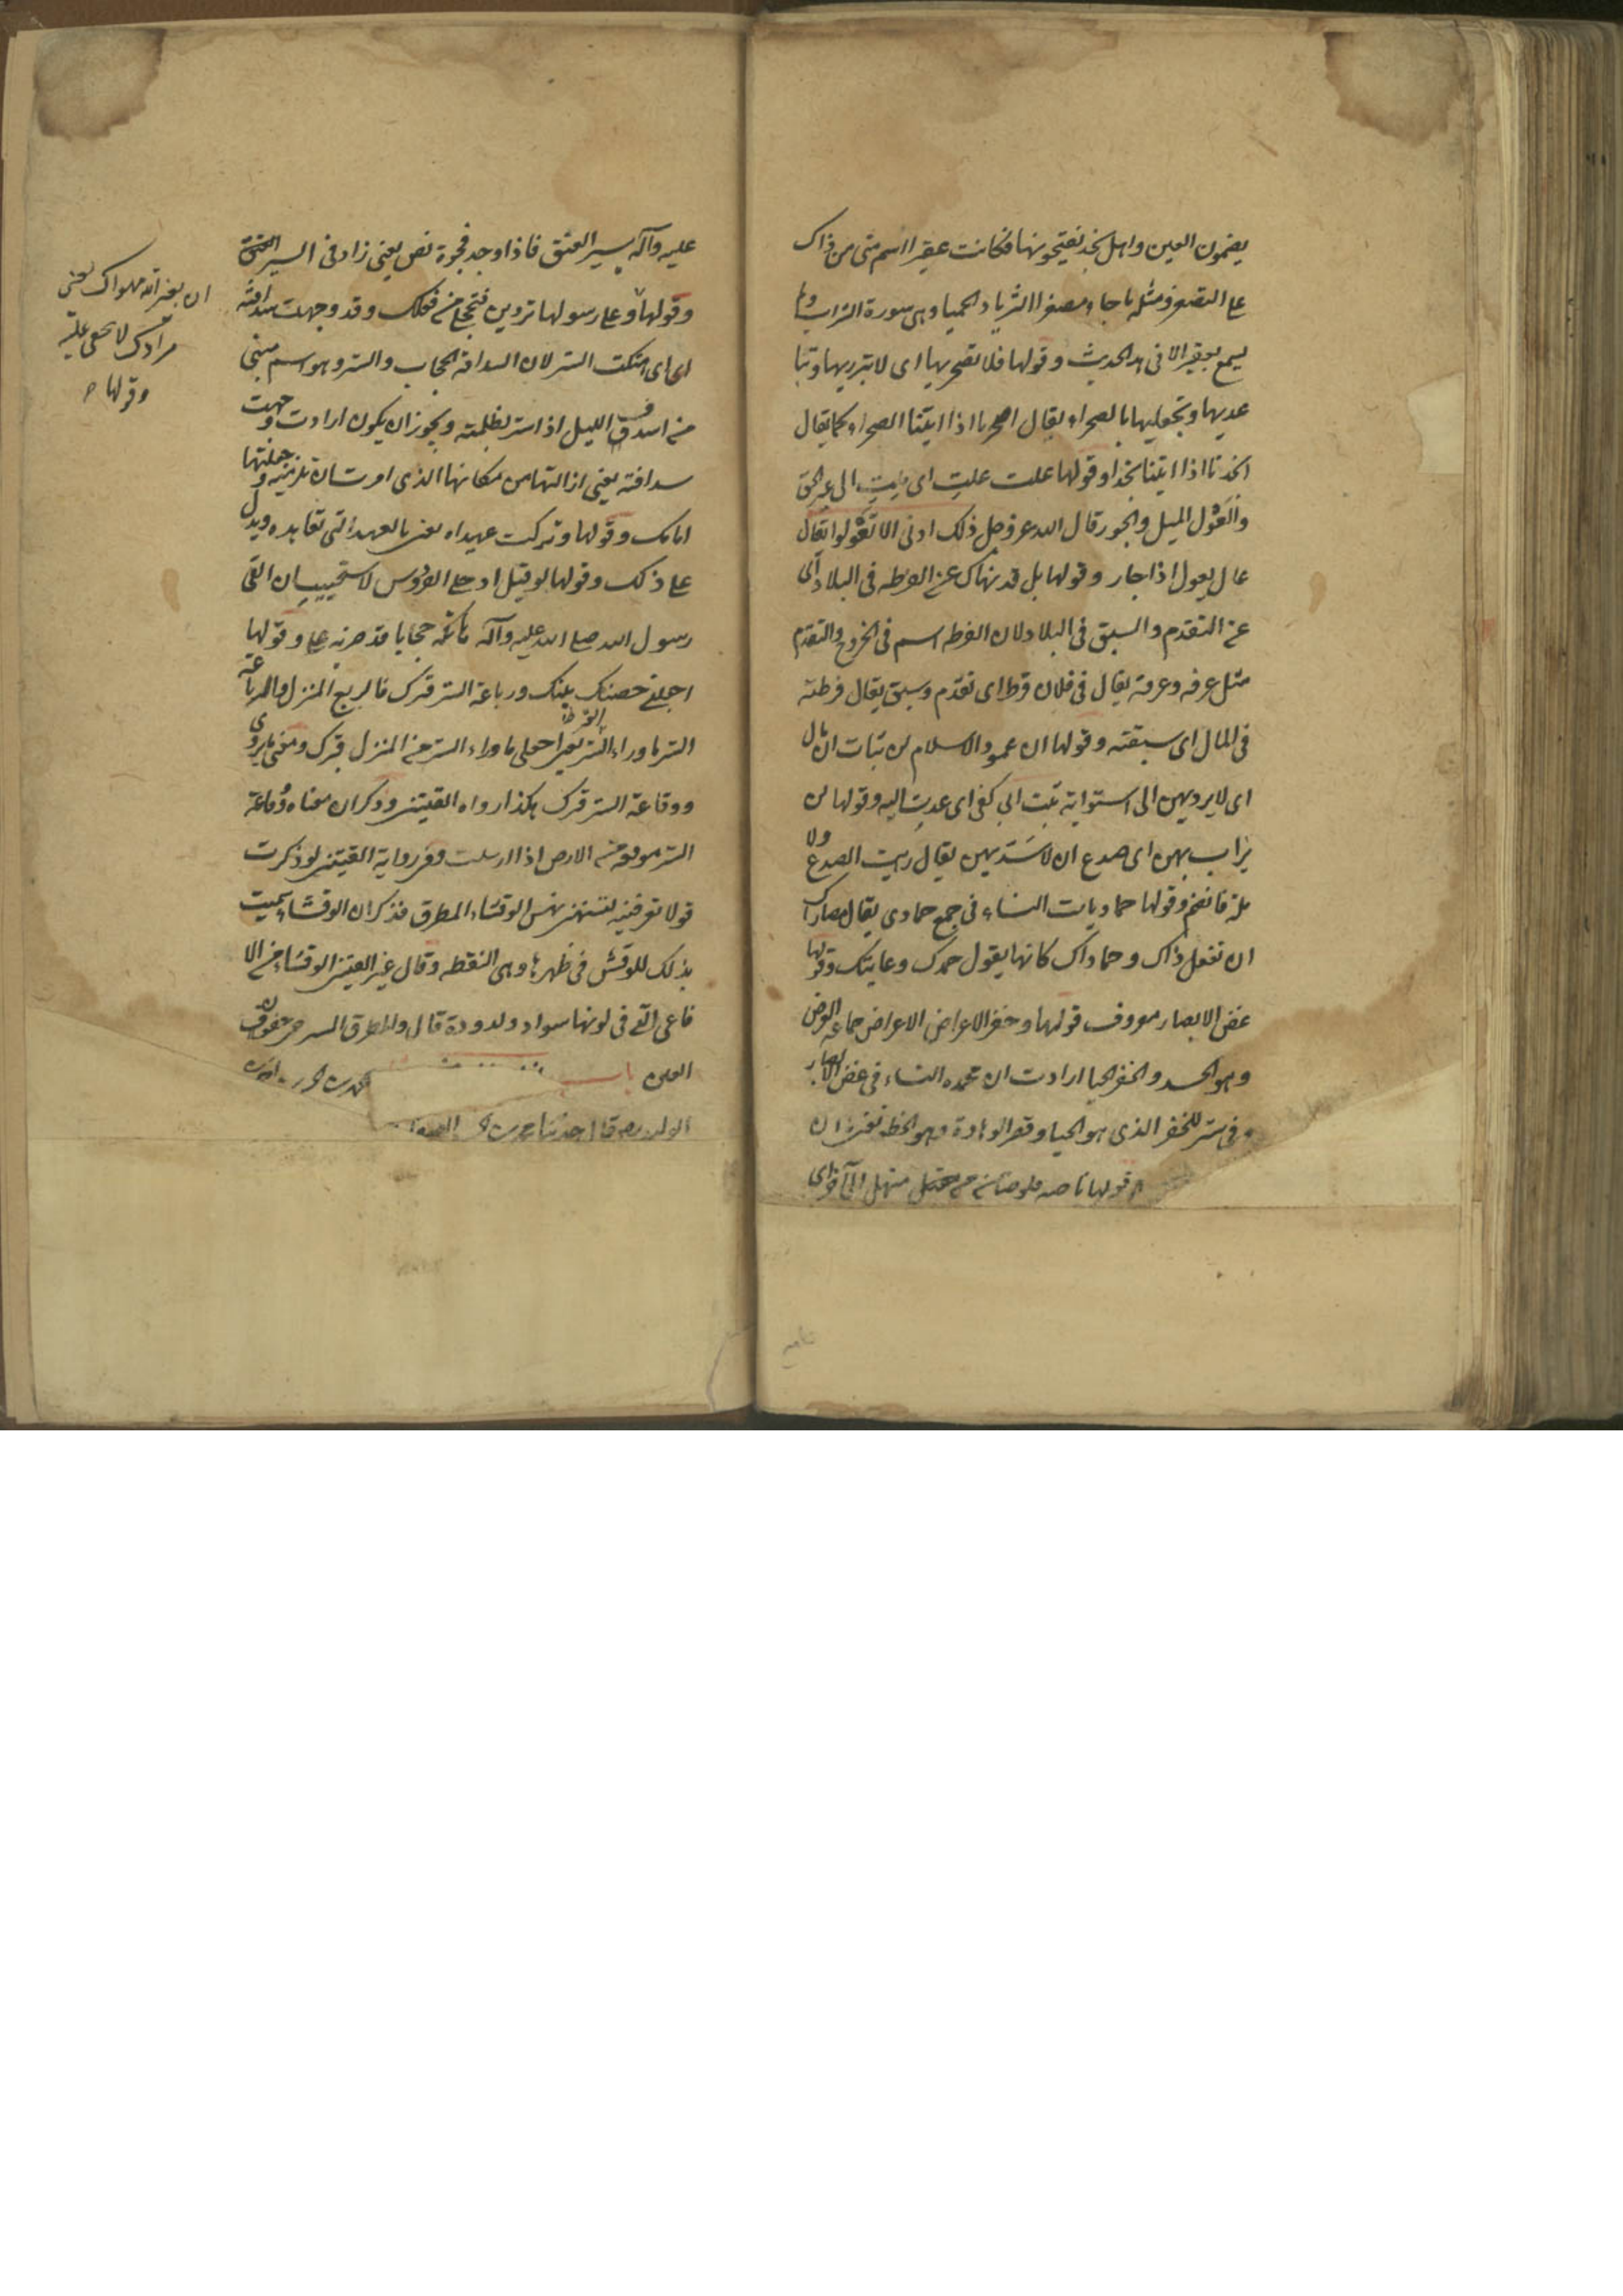 يضمون العين واهل نجد يفتحونها فكانت عقيرا اسم مبنى من ذاك
على التصغير ومثله ما جاء مصغرا الثريا والحميا وهى سورة الشراب ولم
يسمع بعقيرا الا فى هذا الحديث وقولها فلا تصحريها اى لا تبرزيها وتبا
عديها وتجعليها بالصحراء يقال اصحرنا اذا اتينا الصحراء كما يقال
انجدنا اذا اتينا نجدا وقولها علت علت اى ملت الى غير الحق
والعول الميل والجور قال الله عز وجل ذلك ادنى الا تعولوا يقال
عال يعول اذا جار وقولها بل قد نهاك عن الفرطه فى البلاد اى
عن التقدم والسبق فى البلاد لان الفرطه اسم فى الخروج والتقدم
مثل غرفه وغرفة يقال فى فلان فرط اى تقدم وسبق يقال فرطته
فى المال اى سبقته وقولها ان عمود الاسلام لن تثاب ان مال
اى لا يرد بهن الى استوائه ثبت الى كفى اى عدت اليه وقولها لن
يراب بهن اى صدع ان لا تسد بهن يقال رايت الصدع ولا
مته فانضم وقولها حماديات النساء فى جمع حمادى يقال قصاراك
ان تفعل ذاك وحماداك كانها يقول جهدك وغايتك وقولها
غض الابصار معروف قولها وخفر الاعراض الاعراض جماعة العرض
وهو الجسد والخفر الحيا ارادت ان محمده النساء فى غض الابصار
وفى ستر للخفر الذى هو الحيا وقصر الوهادة وهو الخطو تعنى ان
قولها ناصه قلوصا من منهل الى آخر اى
عليه وآله يسير العنق فاذا وجد فجوة نص يعنى زاد فى السير
ان بعين الله مهواك يعنى
مرادك لا يخفى عليه
وقولها
وقولها وعلى رسولها تردين فتخجلى من فعلك وقد وجهت سدافته
اى هتكت الستر لان السدافة الحجاب والستر وهو اسم مبنى
من اسدف الليل اذا ستر بظلمته ويجوز ان يكون ارادت وجهت
سدافته يعنى ازالتها من مكانها الذى امرت ان تلزميه وجعلتها
امامك وقولها وتركت عهيداه تعنى بالعهد التى تعاهده ويدل
على ذلك وقولها لو قيل ادخلى الفردوس لاستحييت ان القى
رسول الله صلى الله عليه وآله هاتكه حجابا قد ضربه على وقولها
اجعلى حصنك بيتك ورباعة الستر قبرك فالربع المنزل والرباعة
الستر ما وراء الستر تعنى اجعلى ما وراء الستر من المنزل قبرك ومعنى ما يروى
ووقاعة الستر قبرك هكذا رواه القتيبى وذكر ان معناه وقاعة
الستر موقعه من الارض اذا ارسلت وفى رواية القتيبى لو ذكرت
قولا تعرفينه لنهشتنى نهش الرقشاء المطرق فذكر ان الرقشاء سميت
بذلك للرقش فى ظهرها وهى النقطه وقال غير القتيبى الرقشاء من الا
فاعى التى فى لونها سواد وكدودة قال والمطرق المسترخى جفون
العين باب